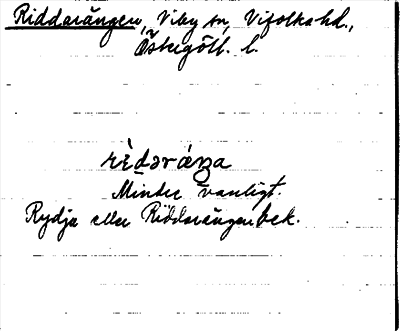 Riddarängen, Viby sn, Vifolka hd.,
Östergötl. l.
rìdəráŋa
Mindre vanligt.
Rydja eller Riddarängen bek.